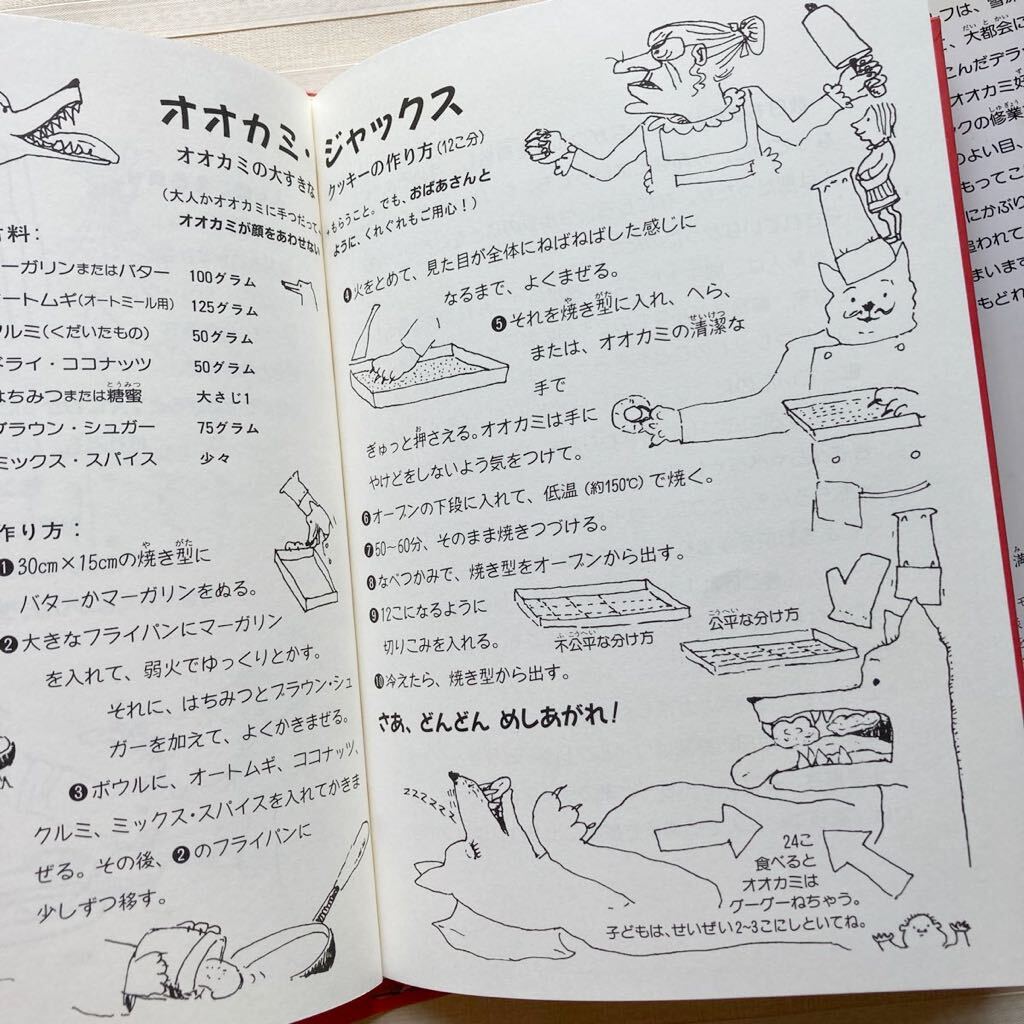 オオカミ・ジャックス
オオカミの大すきな クッキーの作り方(12こ分)
(大人かオオカミに手つだって もらうこと。でも、おばあさんと
オオカミが顔をあわせない ように、くれぐれもご用心!)
料:
ーガリンまたはバター 100グラム
ートムギ(オートミール用) 125グラム
ルミ(くだいたもの) 50グラム
ドライ・ココナッツ 50グラム
はちみつまたは糖蜜 大さじ1
とうみつ
ブラウン・シュガー 75グラム
ミックス・スパイス 少々
作り方:
❶30cm×15cmの焼き型に
や がた
バターかマーガリンをぬる。
❷大きなフライパンにマーガリン
を入れて、弱火でゆっくりとかす。
それに、はちみつとブラウン・シュ
ガーを加えて、よくかきまぜる。
❸ボウルに、オートムギ、ココナッツ、
クルミ、ミックス・スパイスを入れてかきま
ぜる。その後、❷のフライパンに
少しずつ移す。
❹火をとめて、見た目が全体にねばねばした感じに
なるまで、よくまぜる。
❺それを焼き型に入れ、へら、
や がた
または、オオカミの清潔な
せいけつ
手で
ぎゅっと押さえる。オオカミは手に
お
やけどをしないよう気をつけて。
❻オーブンの下段に入れて、低温(約150℃)で焼く。
❼50~60分、そのまま焼きつづける。
❽なべつかみで、焼き型をオーブンから出す。
❾12こになるように
切りこみを入れる。
不公平な分け方
ふこうへい
公平な分け方
こうへい
❿冷えたら、焼き型から出す。
さあ、どんどん めしあがれ!
zzzzz
24こ
食べると
オオカミは
グーグーねちゃう。
子どもは、せいぜい2~3こにしといてね。
フは、
、大都会に
だい と かい
こんだテラ
オオカミ好
クの修業
しゅぎょう
のよい目、
もってこ
にかぶり
追われて
まいます
もどれ